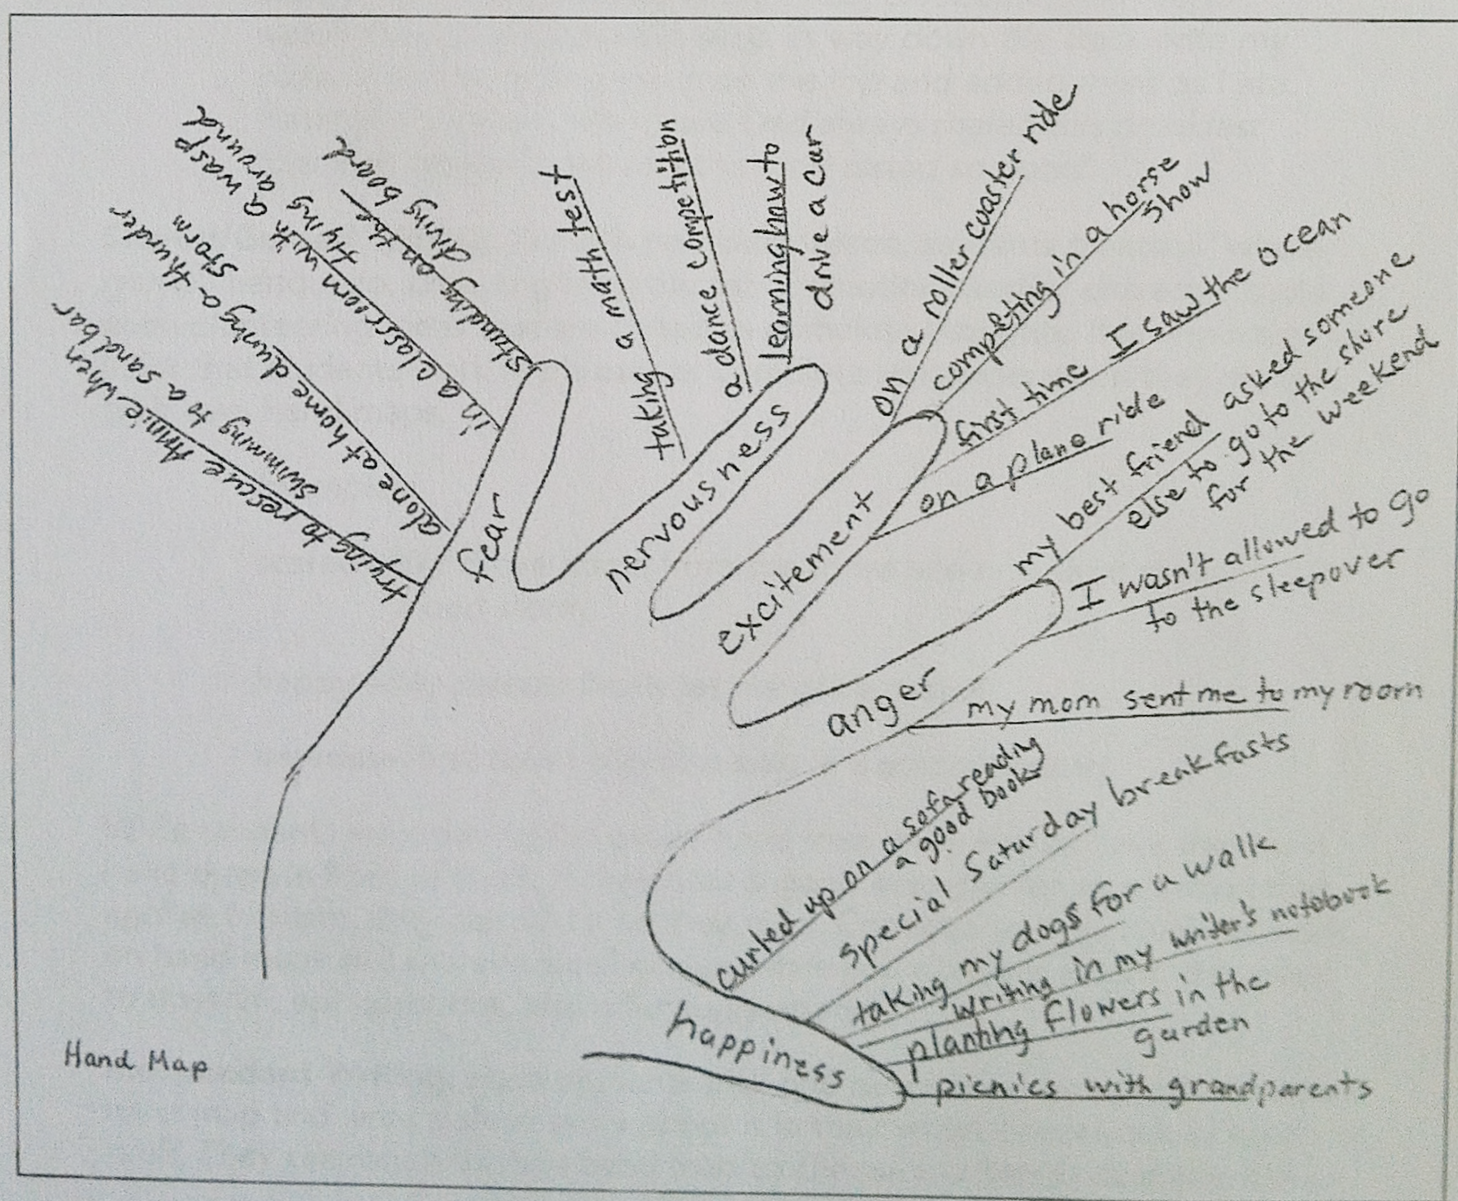 fear
trying to rescue Annie when
swimming to a sandbar
alone at home during a thunder
storm
in a classroom with a wasp
flying around
standing on the
diving board
nervousness
taking a math test
a dance competition
learning how to
drive a car
excitement
on a roller coaster ride
competing in a horse
show
first time I saw the ocean
on a plane ride
anger
my best friend asked someone
else to go to the shore
for the weekend
I wasn't allowed to go
to the sleepover
my mom sent me to my room
happiness
curled up on a sofa reading
a good book
special Saturday breakfasts
taking my dogs for a walk
writing in my writer's notebook
planting flowers in the
garden
picnics with grandparents
Hand Map